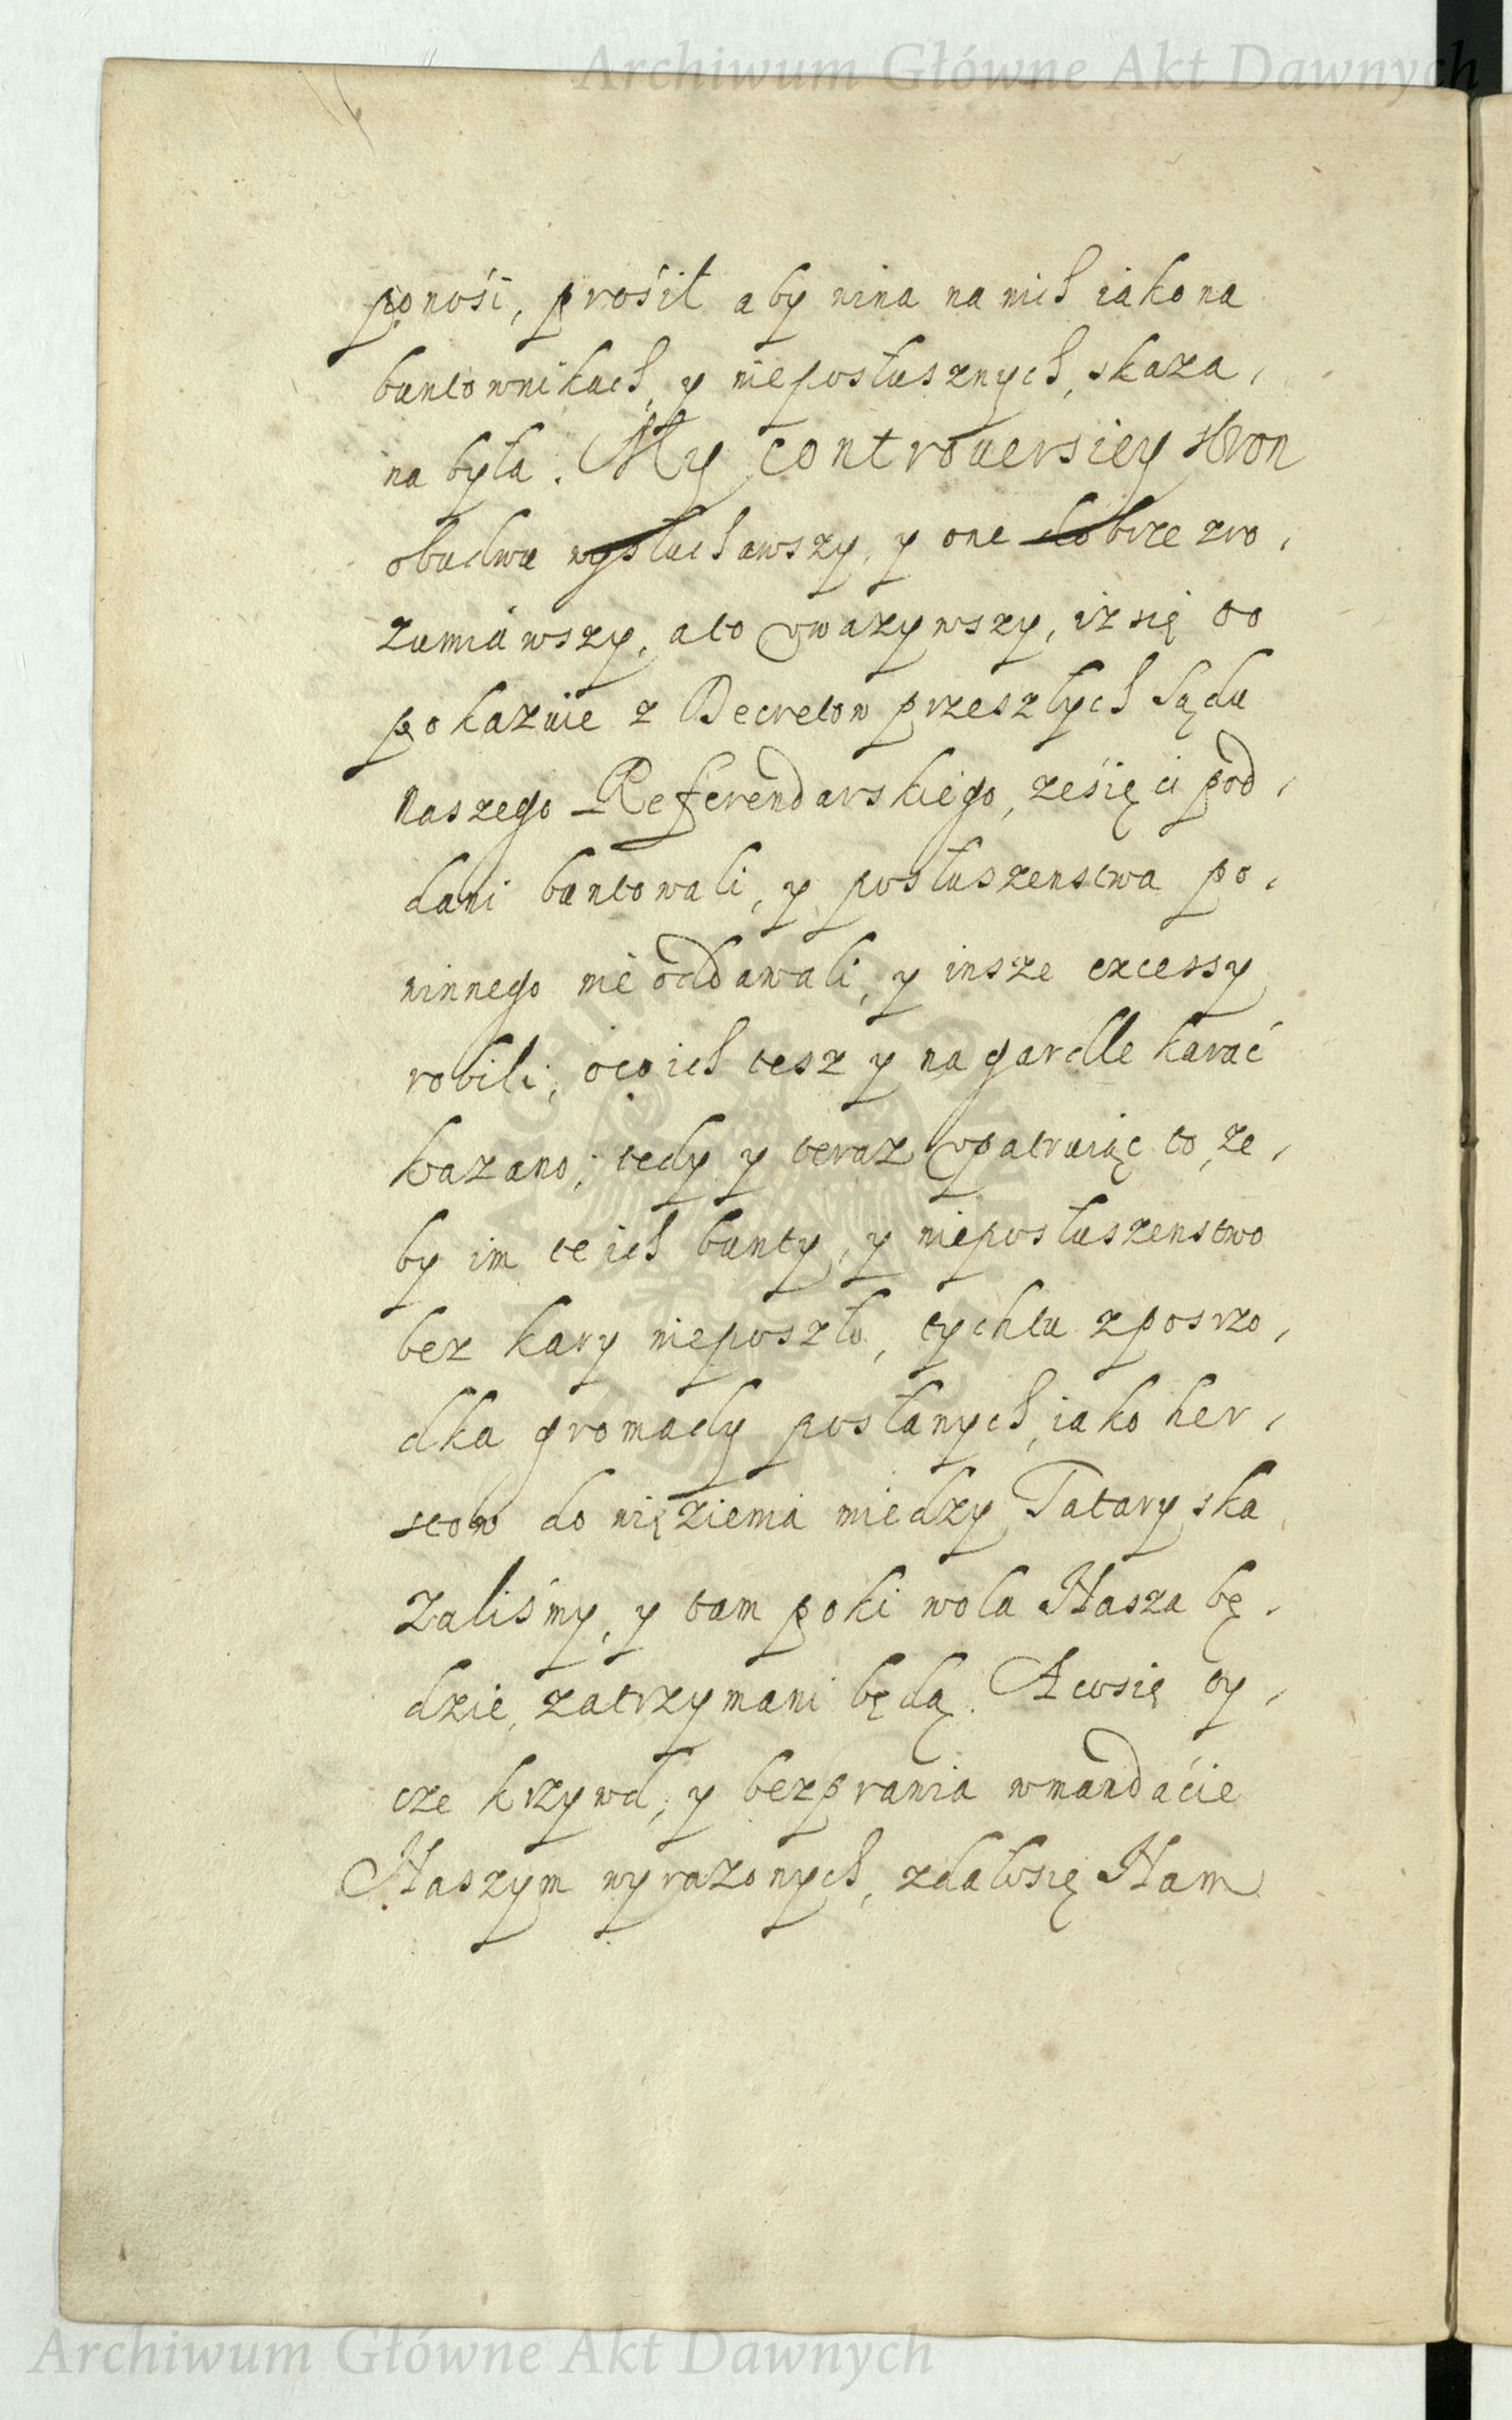 Archiwum Główne Akt Dawnych
ponośi, prośił aby wina na nich iako na
buntownikach, y nieposłusznych, skaza,
na była. My controuersiey stron
obudwu wysłuchawszy, y one dobrze zro,
zumiáwszy, a to vważywszy, iż się to
pokazuie z Decretow przeszłych Sądu
Naszego Referendarskiego, że śię ci pod,
dani buntowali, y posłuszenstwa po,
winnego nie oddawali, y insze excessy
robili, o co ich tesz y na gardle karać
kazano, tedy y teraz vpatruiąc to, że,
by im te ich bunty, y nieposłuszenstwo
bez kary nieposzło, tych tu zposrzo,
dka gromady posłanych, iako her,
sztow do więzienia miedzy Tatary ska
zaliśmy, y tam poki wola Nasza bę,
dzie, zatrzymani będą. A co się ty,
cze krzywd, y bezprawia w mandaćie
Naszym wyrażonych, zdało się Nam
Archiwum Główne Akt Dawnych